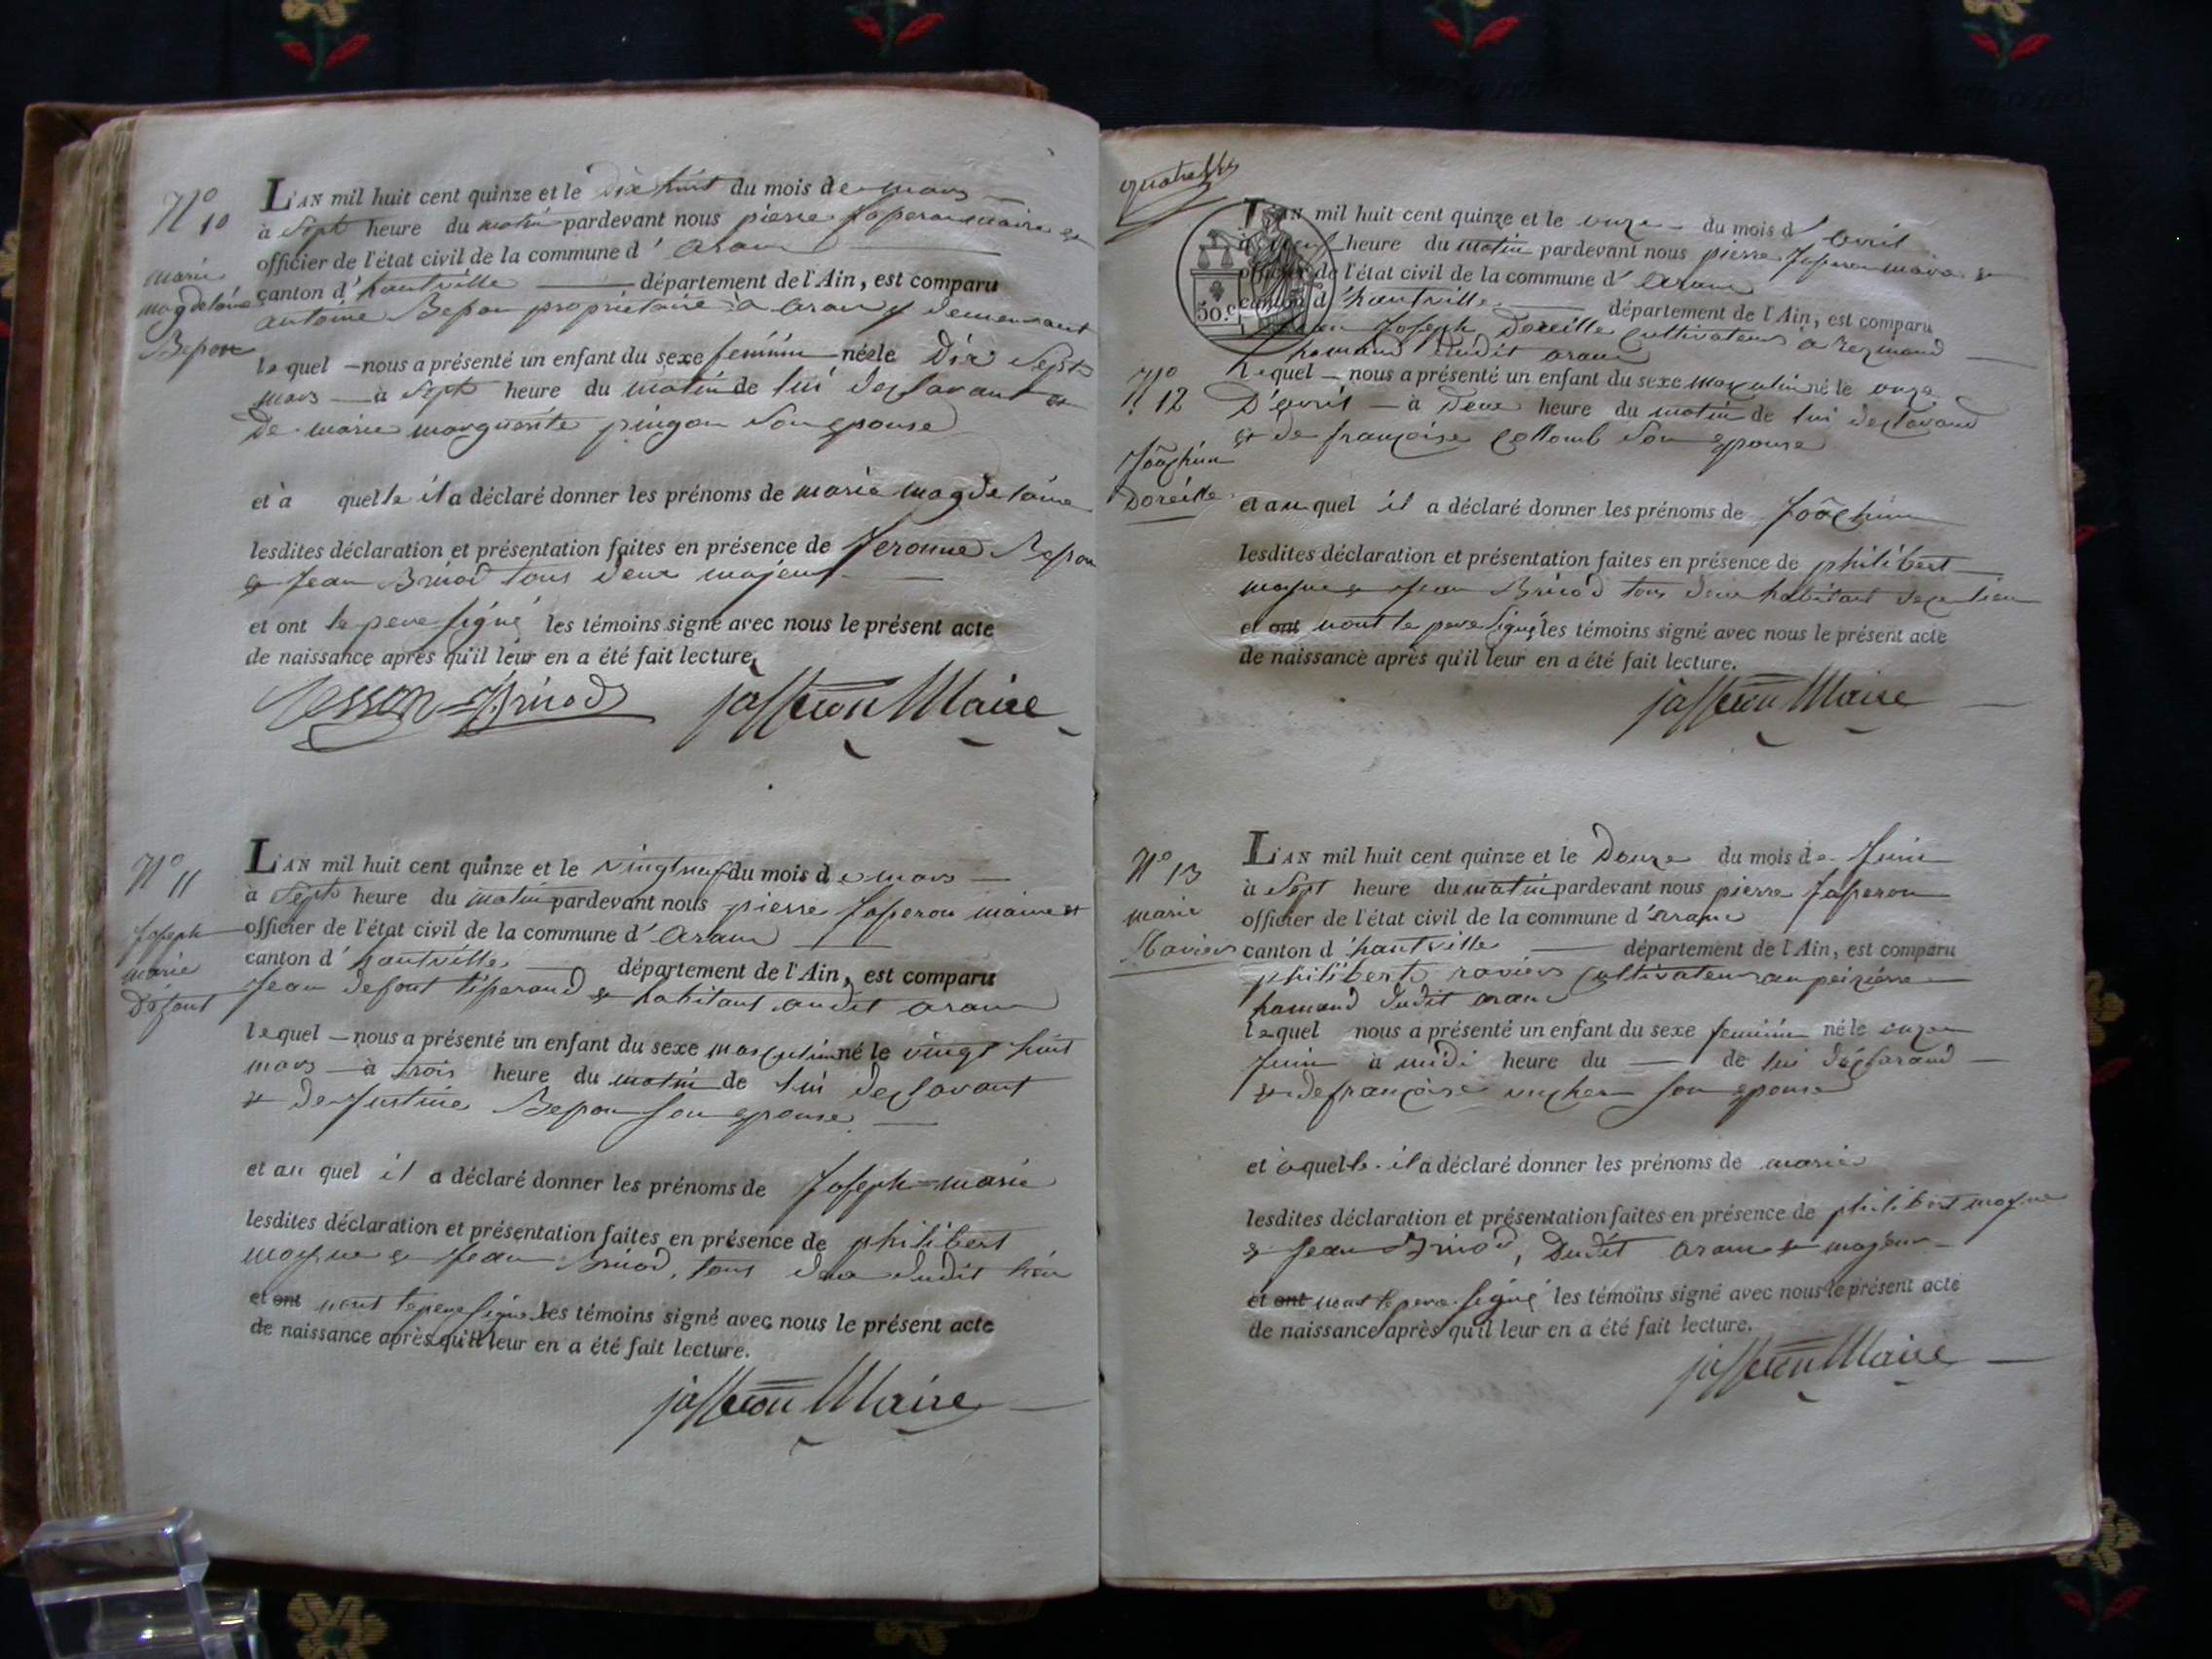 N° 10
marie
magdelaine
Besson
L'AN mil huit cent quinze et le dix huit du mois de mars
à sept heure du matin pardevant nous pierre Jasseron maire et
officier de l'état civil de la commune d' aranc
canton d' hautville département de l'Ain, est comparu
antoine Besson proprietaire à aranc y demeurant
lequel nous a présenté un enfant du sexe feminin née le Dix Sept
mars à sept heure du matin de lui declarant et
De marie marguerite pingon son epouse
et à quelle il a déclaré donner les prénoms de marie magdelaine
lesdites déclaration et présentation faites en présence de Jeromme Besson
et Jean Brinod tous deux majeurs
et ont le pere signé les témoins signé avec nous le présent acte
de naissance après qu'il leur en a été fait lecture.
Besson Brinod jasseron Maire
N° 11
Joseph
marie
Defont
L'AN mil huit cent quinze et le vingt neuf du mois de mars
à sept heure du matin pardevant nous pierre Jasseron maire et
officier de l'état civil de la commune d' aranc
canton d' hautville département de l'Ain, est comparu
Jean defont tisserand et habitant audit aranc
lequel nous a présenté un enfant du sexe masculin né le vingt huit
mars à trois heure du matin de lui declarant
et de Justine Besson son epouse
et au quel il a déclaré donner les prénoms de Joseph=marie
lesdites déclaration et présentation faites en présence de philibert
et Jean Brinod, tous deux dudit lieu
et ont le pere signé les témoins signé avec nous le présent acte
de naissance après qu'il leur en a été fait lecture.
jasseron Maire
50.c
L'AN mil huit cent quinze et le onze du mois d' avril
à heure du matin pardevant nous pierre Jasseron maire et
officier de l'état civil de la commune d' aranc
canton d' hautville département de l'Ain, est comparu
Joseph Doreille cultivateur à rezinand
hamand dudit aranc
N° 12
Jôachim
Doreille
Lequel nous a présenté un enfant du sexe masculin né le onze
D'avril à deux heure du matin de lui declarand
et de françoise Collomb son epouse
et au quel il a déclaré donner les prénoms de Jôachim
lesdites déclaration et présentation faites en présence de philibert
et Jean Brinod tous deux habitant de ce lieu
et ont nont le pere signé les témoins signé avec nous le présent acte
de naissance après qu'il leur en a été fait lecture.
jasseron Maire
N° 13
marie
Raviers
L'AN mil huit cent quinze et le Douze du mois de Juin
à sept heure du matin pardevant nous pierre Jasseron
officier de l'état civil de la commune d' aranc
canton d' hautville département de l'Ain, est comparu
philibert raviers cultivateur au
hamand dudit aranc
lequel nous a présenté un enfant du sexe feminin né le onze
Juin à midi heure du de lui declarand
et de françoise son epouse
et à quelle il a déclaré donner les prénoms de marie
lesdites déclaration et présentation faites en présence de philibert
et Jean Brinod, Dudit aranc et majeurs
et ont nont le pere signé les témoins signé avec nous le présent acte
de naissance après qu'il leur en a été fait lecture.
jasseron Maire